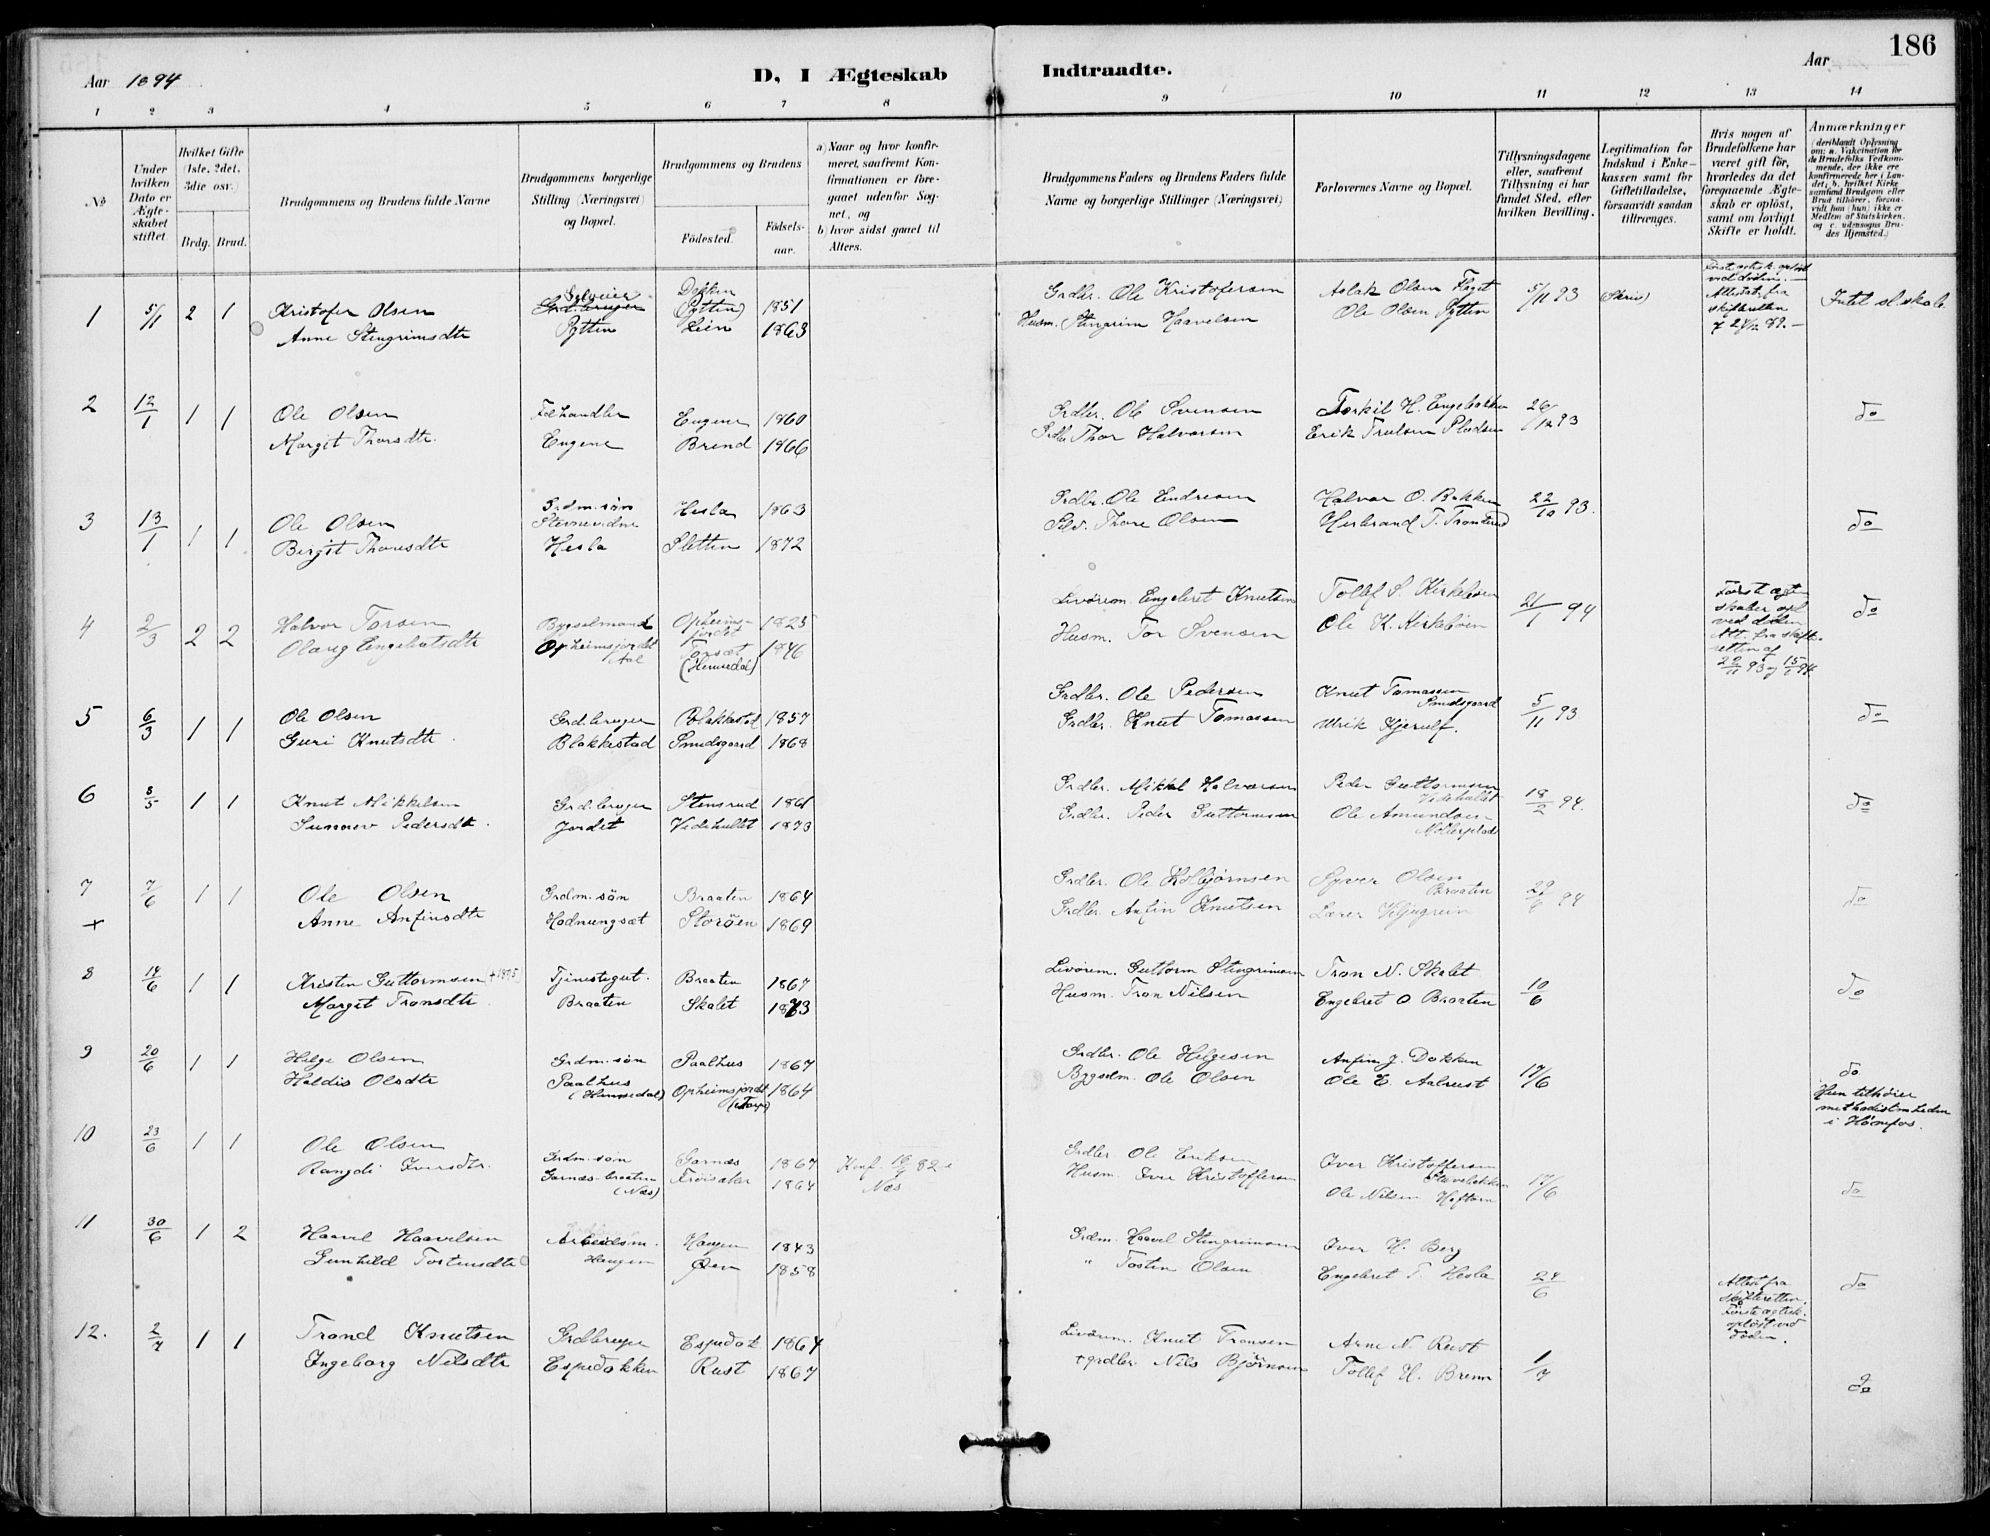 186
Aar 1894
D, I Ægteskab Indtraadte.
Aar
1 2 3 4 5 6 7 8 9 10 11 12 13 14
№
Under hvilken Dato er Ægteskabet stiftet
Hvilket Gifte (1ste, 2det, 3die osv.)
Brdg. Brud.
Brudgommens og Brudens fulde Navne
Brudgommens borgerlige Stilling (Næringsvei) og Bopæl.
Brudgommens og Brudens
Födested.
Födselsaar.
a) Naar og hvor konfirmeret, saafremt Konfirmationen er foregaaet udenfor Sognet, og
b) hvor sidst gaaet til Alters.
Brudgommens Faders og Brudens Faders fulde Navne og borgerlige Stillinger (Næringsvei)
Forlovernes Navne og Bopæl.
Tillysningsdagene eller, saafremt Tillysning ei har fundet Sted, efter hvilken Bevilling.
Legitimation for Indskud i Enkekassen samt for Giftetilladelse, forsaavidt saadan tiltrænges.
Hvis nogen af Brudefolkene har været gift för, hvorledes da det foregaaende Ægteskab er oplöst, samt om lovligt Skifte er holdt.
Anmærkninger (deriblandt Oplysning om: a. Vakcination for de Brudefolks Vedkommende, der ikke ere konfirmerede her i Landet; b. hvilket Kirkesamfund Brudgom eller Brud tilhörer, forsaavidt han (hun) ikke er Medlem af Statskirken, og c. udensogns Brudes Hjemsted.)
1 5/1 2 1 Kristofer Olsen Selveier Dokken (Pytten) 1851 Grdbr. Ole Kristofersen Aslak Olsen Flaget 5/11 93 (Skris) Intet sl.skab
Anne Stengrimsdtr Pytten Lien 1863 Husm. Stengrim Haavelsen Ole Olsen Pytten
Attestats fra skifteretten
2 12/1 1 1 Ole Olsen Fehandler Eugene 1860 Grdbr. Ole Svensen Torkil H. Engebakken 26/12 93 do
Margit Thorsdtr. Eugene Brend 1866 Grdbr Thor Halvorsen Erik Trulsen Pladsen
3 13/1 1 1 Ole Olsen Grdm.søn Hesla 1863 Grdbr. Ole Endresen Halvor O. Bakken 22/10 93. do
Birgit Thoresdtr Hesla Sletten 1872 Selv. Thore Olsen Herbrand T. Trondrud
4 2/3 2 2 Halvor Torsen Bygselmand Opheimsjordet 1825 Livørem. Engebret Knutsen Tollef S. Kirkebøen 21/1 94 do
Olaug Engebretsdtr Opheimsjordet Aal Torsæt (Hemsedal) 1846 Husm. Tor Svensen Ole K. Kirkebøen
Først ægteskaber opl ved døden Att. fra skifteretten af
5 6/3 1 1 Ole Olsen Grd.bruger Blakkestad 1857 Grdbr. Ole Pedersen Knut Tomassen Smedsgaard 5/11 93 do
Guri Knutsdtr Blakkestad Smedsgaard 1868 Grdbr. Knut Tomassen Ulrik Kjerulf.
6 8/5 1 1 Knut Mikkelsen Grd.bruger Stensrud 1861 Grdbr. Mikkel Halvorsen Peder Guttormsen Videhullet 18/2 94. do
Sunnev Pedersdtr. Jordet Videhullet 1873 Grdbr. Peder Guttormsen Ole Amundsen
7 7/6 1 1 Ole Olsen Grdm.søn Braaten 1864 Grdbr. Ole Kolbjørnsen Syver Olsen Braaten do
+ Anne Anfinsdtr Hodnungsæt Storøen 1869 Grdbr. Anfin Knutsen Lærer
8 14/6 1 1 Kristen Guttormsen Tjenestegut. Braaten 1867 Livørem. Guttorm Stengrimsen Tron N. Skalet 10/6 do
Margit Tronsdtr Braaten Skalet 1873 Husm. Tron Nilsen Engebret O Braaten
9 20/6 1 1 Helge Olsen Grdm.søn Paalhus 1867 Grdbr. Ole Helgesen Anfin J. Dokken 17/6 do
Haldis Olsdtr Paalhus (Hemsedal) Opheimsjordet (Torpe) 1864 Bygselm. Ole Olsen Ole E. Aalrust
Hun tilhører methodistmheden i Hønefos.
10 23/6 1 1 Ole Olsen Grdm.søn Garnæs 1867 Konf. 82 Næs Grdbr Ole Eriksen Iver Kristoffersen 17/6 do
Rangdi Iversdtr. Garnæs-braaten (Næs) Trøisaker 1864 Husm. Iver Kristoffersen Ole Nilsen Haftorn
11 30/6 1 2 Haavel Haavelsen Arbeidsm. Haugen 1843 Grdm. Haavel Stengrimsen Iver H. Berg 24/6 do
Gunhild Tostensdtr Haugen Øen 1858 " Tosten Olsen Engebret T. Hesla
Attest fra skifteretten. Første ægtesk. opløst ved døden.
12. 2/7 1 1 Trond Knutsen Grdbruger Espedok. 1864 Livørem. Knut Tronsen Arne N. Rust 1/7 do
Ingeborg Nilsdtr Espedokken Rust 1867 + grdbr Nils Bjørnsen Tollef H. Brenn